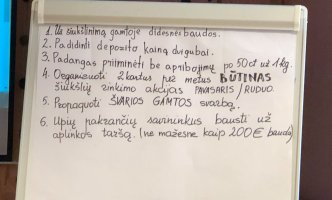 1. Už šiukšlinimą gamtoje didesnės baudos.
2. Padidinti depozito kainą dvigubai.
3. Padangas priiminėti be apribojimų po 50 ct už 1 kg.
4. Organizuoti 2 kartus per metus BŪTINAS
šiukšlių rinkimo akcijas PAVASARIS / RUDUO.
5. Propaguoti ŠVARIOS GAMTOS svarbą.
6. Upių pakrančių savininkus bausti už
aplinkos taršą (ne mažesne kaip 200€ bauda)